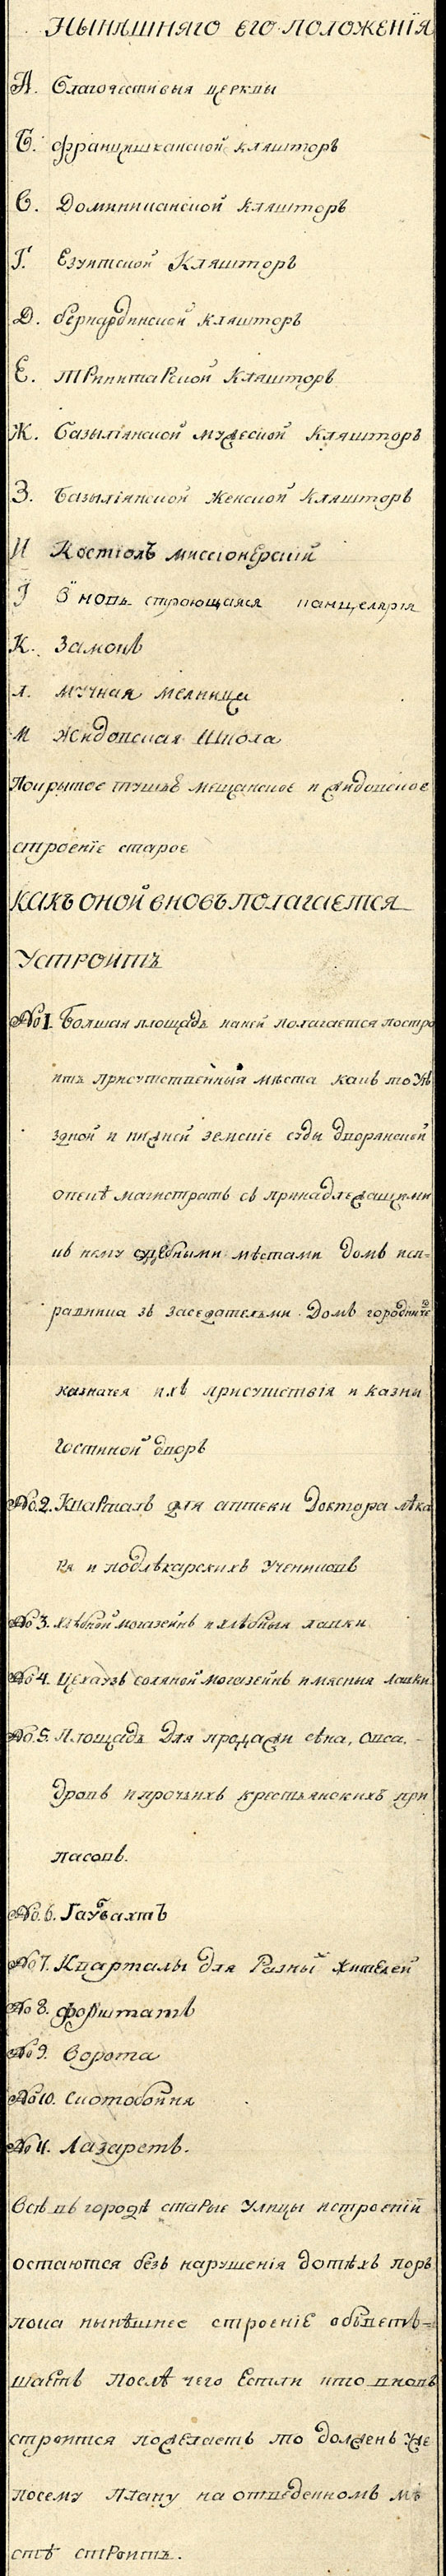 НЫНѢШНЯГО ЕГО ПОЛОЖЕНІЯ
А. Благочестивыя церквы
Б. францишканской кляшторъ
В. Доминиканской кляшторъ
Г. Езуитской Кляшторъ
Д. бернардинской кляшторъ
Е. тринитарской кляшторъ
Ж. Базыліянской мужеской кляшторъ
З. Базыліянской женской кляшторъ
И Костіолъ миссіонерскій
І Вновь строющаяся канцелярія
К. Замокъ
Л. мучная мелница
М Жидовская Школа
Покрытое тушьѣ мещанское и жидовское
строеніе старое
КАКЪ ОНОЙ ВНОВЬ ПОЛАГАЕТСЯ
УСТРОИТЬ
№1. Болшая площадь на ней полагается постро
ить присутственныя мѣста какъ то уѣ
здной и нижней земскіе суды дворянской
опекѣ магистратъ съ принадлежащими
къ нему судебными мѣстами домъ исп=
равника зъ заседателями. Домъ городниче
казначея ихъ присутствія и казны
гостиной дворъ
№2. Кварталъ для аптеки Доктора лѣка
ря и подлѣкарскихъ учениковъ
№3. хлѣбной могазейнъ и хлѣбныя лавки
№4. Цехаузъ соляной могазейнъ и мясныя лавки
№5. Площадь для продажи сѣна, овса,
дровъ и прочихъ крестьянскихъ при
пасовъ.
№6. Гаубвахтъ
№7. Кварталы для Разны жителей
№8. форштатъ
№9. Ворота
№10. Скотобойня
№11. Лазаретъ.
Всѣ въ городѣ старые улицы и строеній
остаются безъ нарушенія дотѣхъ поръ
пока нынѣшнее строеніе обветъ=
шаетъ Послѣ чего Естли кто вновь
строится пожелаетъ то долженъ уже
посему плану на отведенномъ мѣ
стѣ строить.